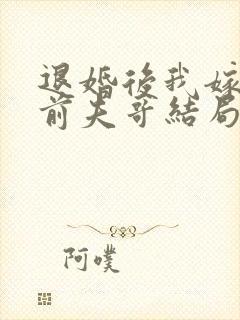 退婚後我嫁
前夫哥結局
阿噗